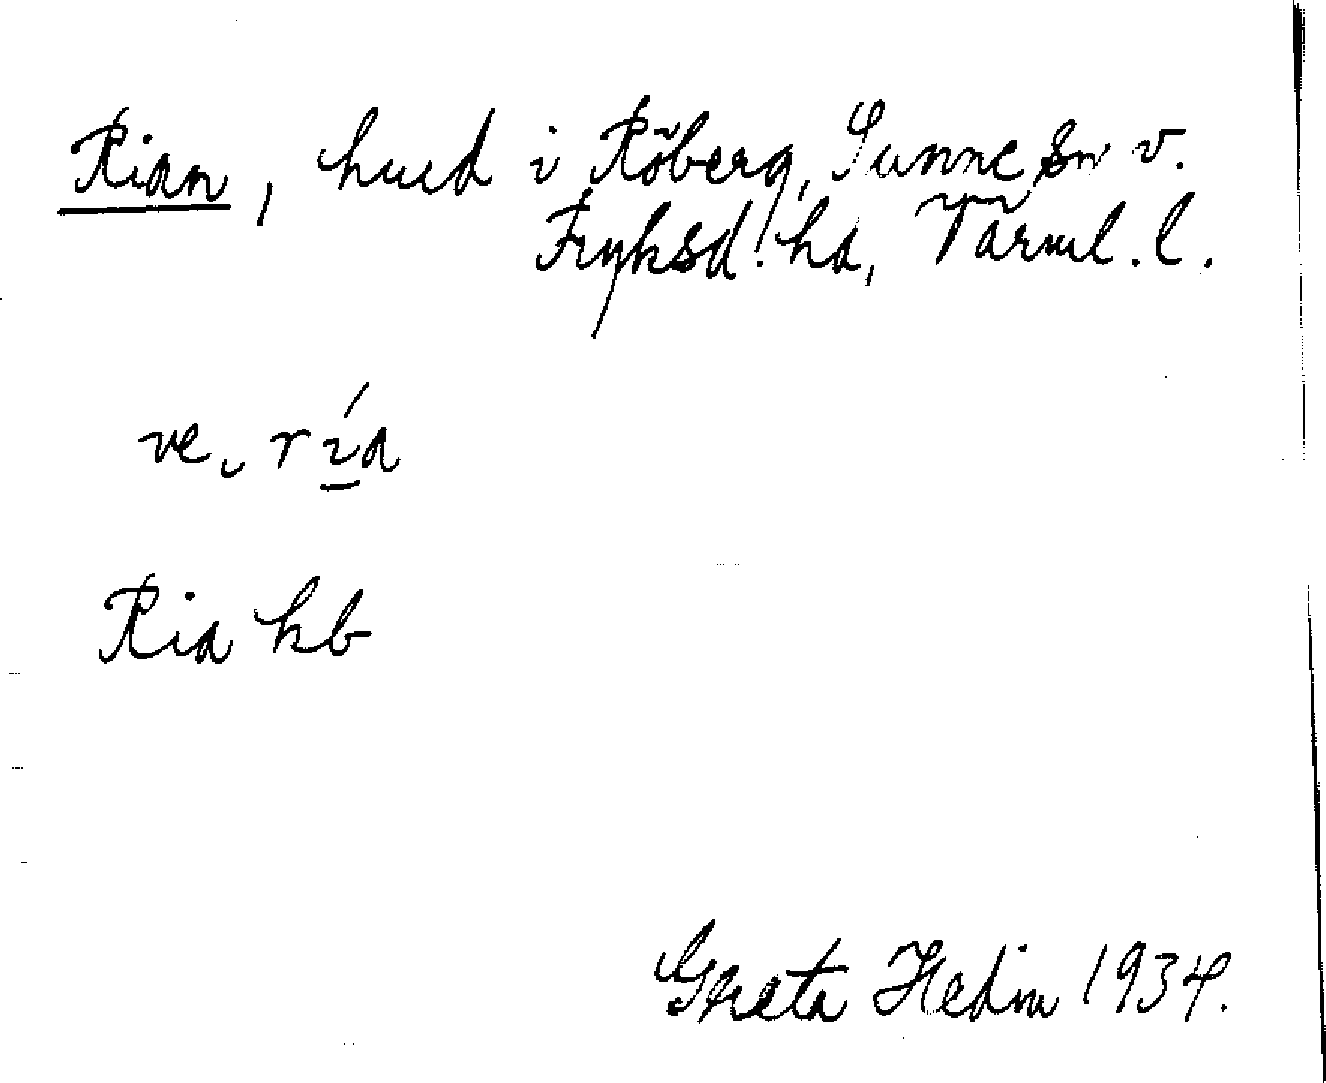 Rian, hus i Röberg, Sunne sn v.
Fryksd. hd, Värml. l.
ve, ría
Ria kb
Greta Hedin 1934.